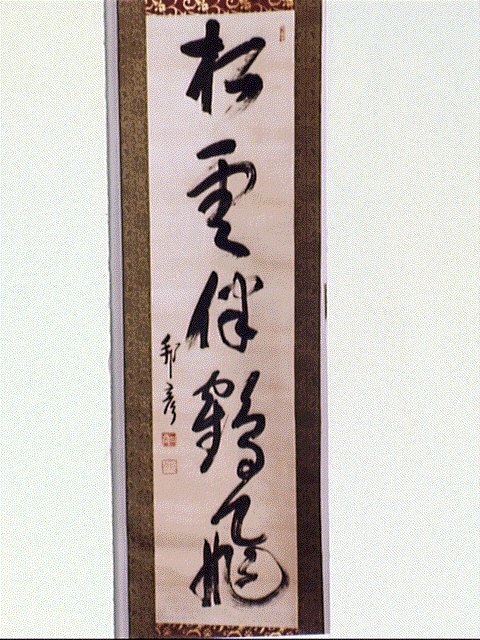 松雲伴鶴飛
邦彦